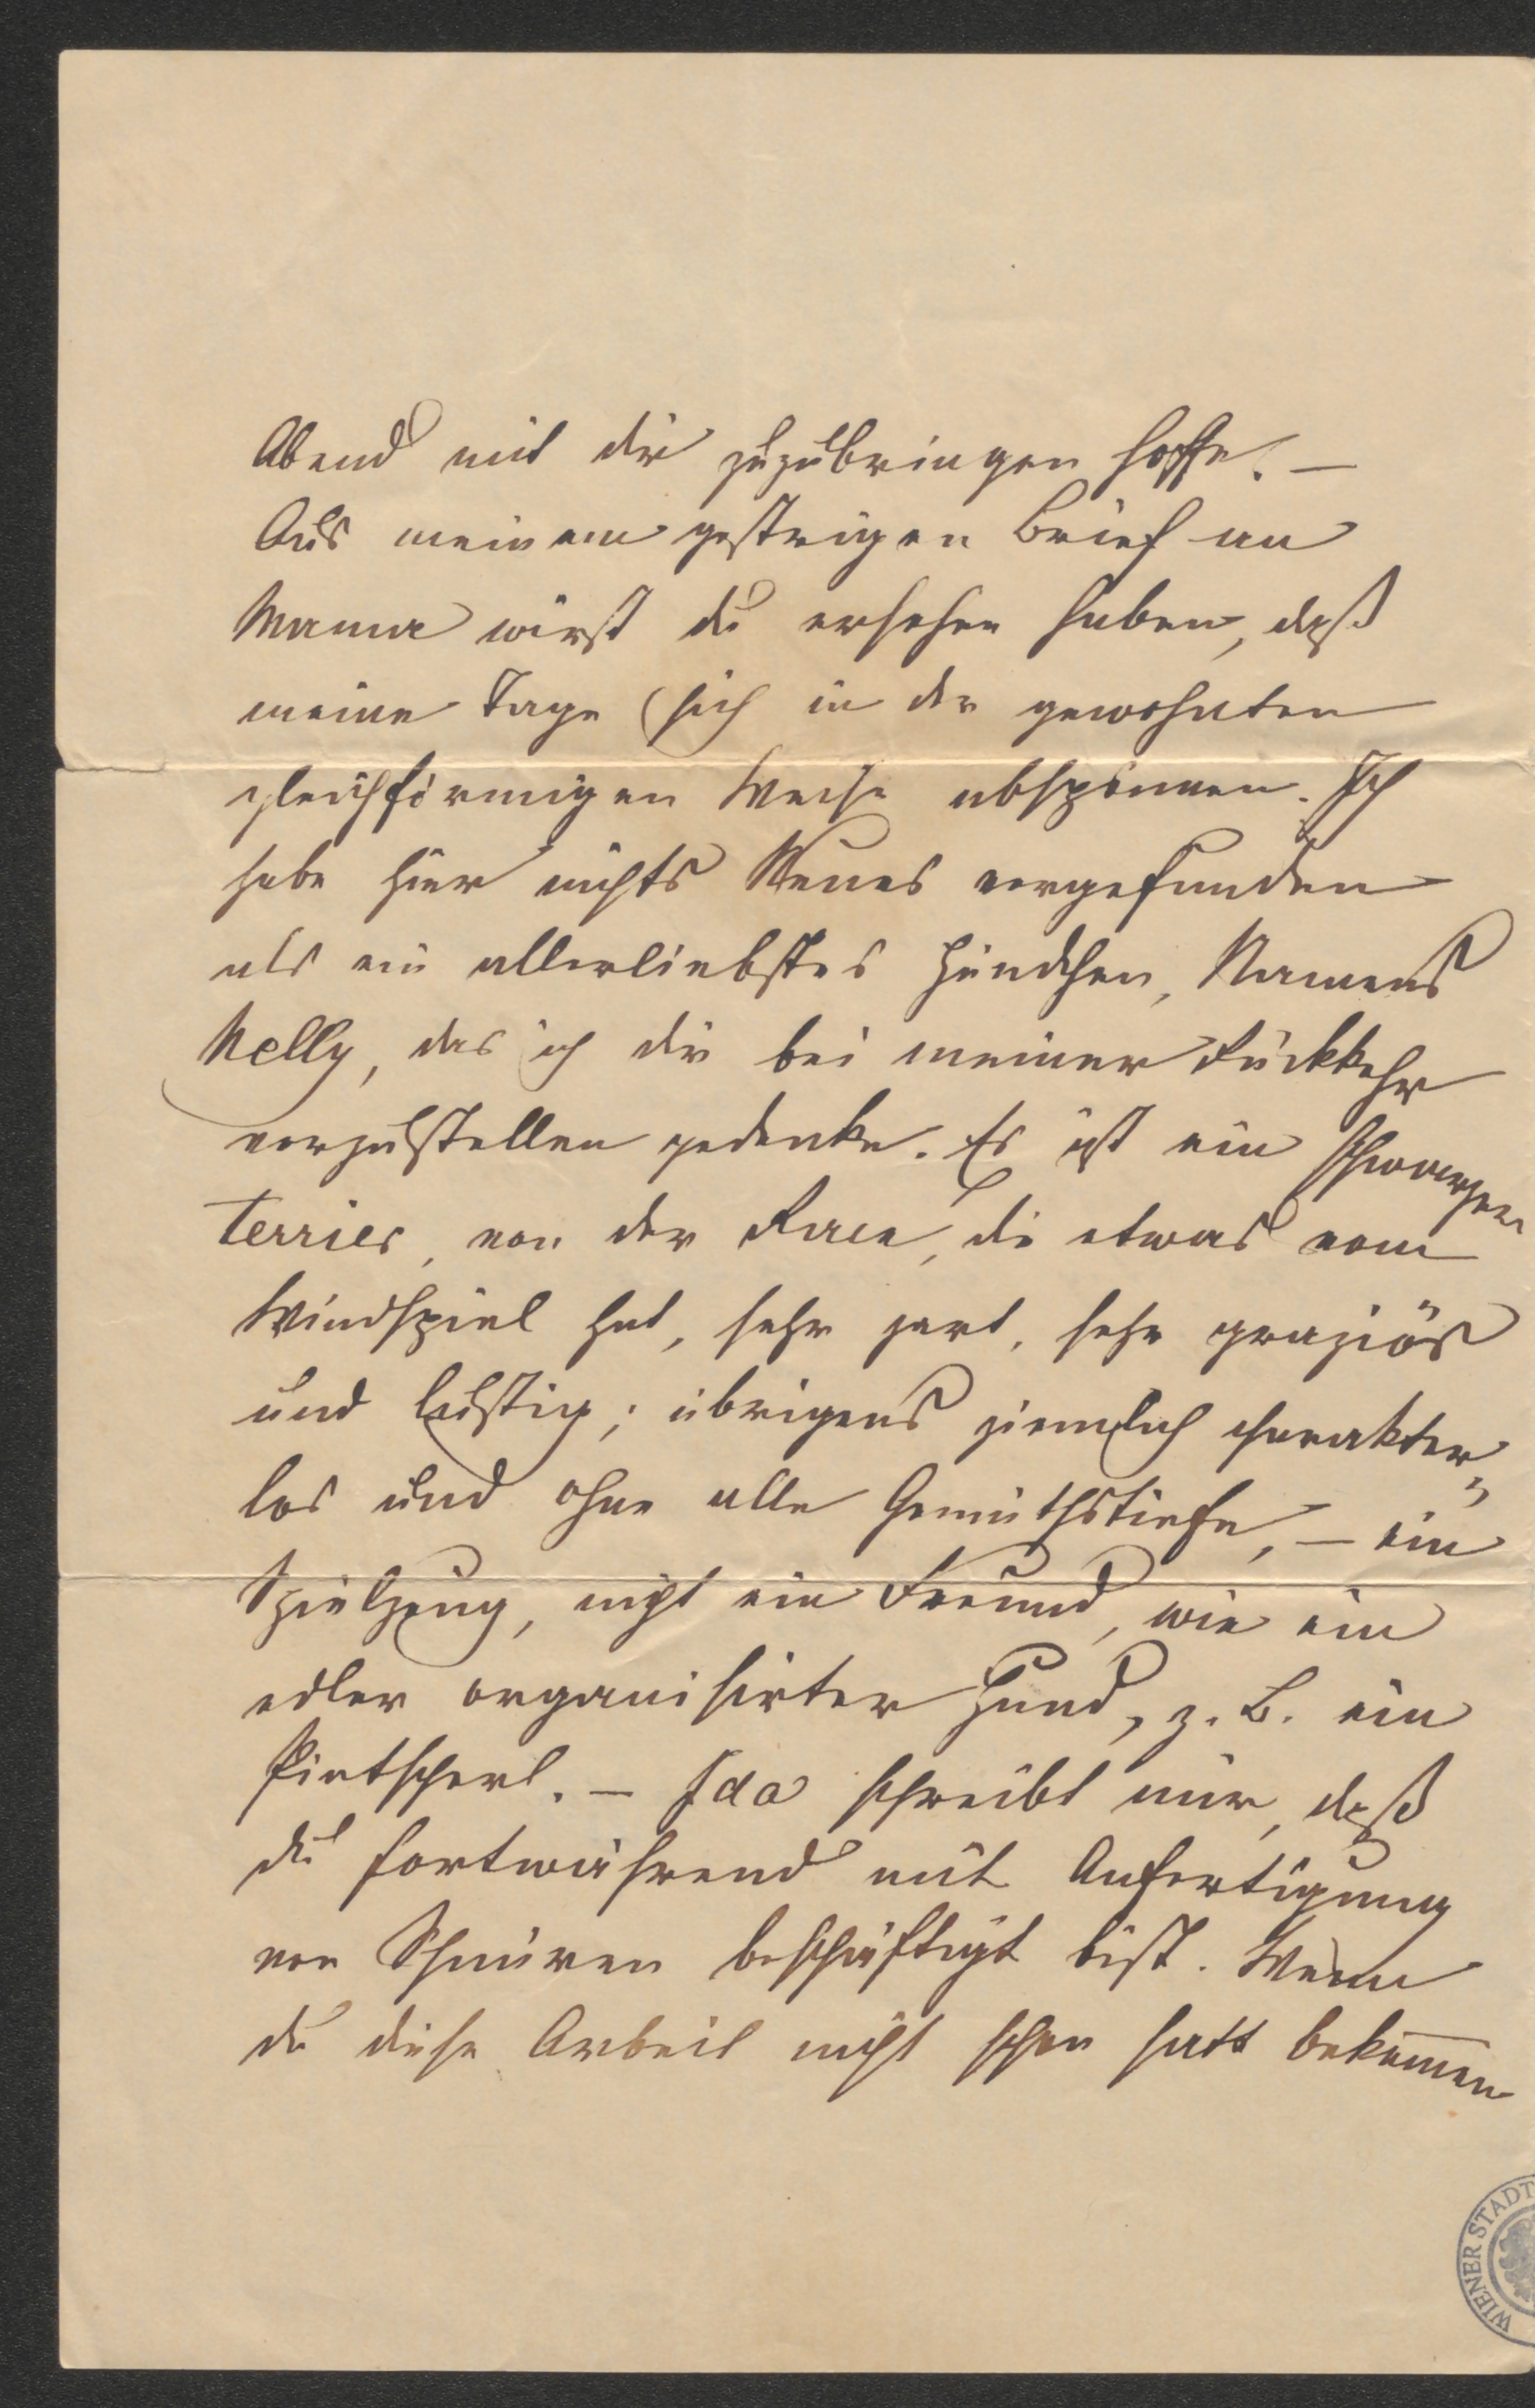 Abend mit dir zuzubringen hoffe. –
Aus meinem gestrigen Brief an
Mama wirst du ersehen haben, daß
meine Tage sich in der gewohnten
gleichförmigen Weise abspinnen. Ich
habe hier nichts Neues vorgefunden
als ein allerliebstes Hündchen, Namens
Nelly, das ich dir bei meiner Rückkehr
vorzustellen gedenke. Es ist ein schwarzer
Terrier, von der Race, die etwas vom
Windspiel hat, sehr zart, sehr graziös
und lustig; übrigens ziemlich charakter-
los und ohne alle Gemüthstiefe, – ein
Spielzeug, nicht ein Freund, wie ein
edler organisirter Hund, z. B. ein
Pintscherl. – Ida schreibt mir, daß
du fortwährend mit Anfertigung
von Schnüren beschäftigt bist. Wenn
du diese Arbeit nicht schon satt bekommen
WIENER STADT